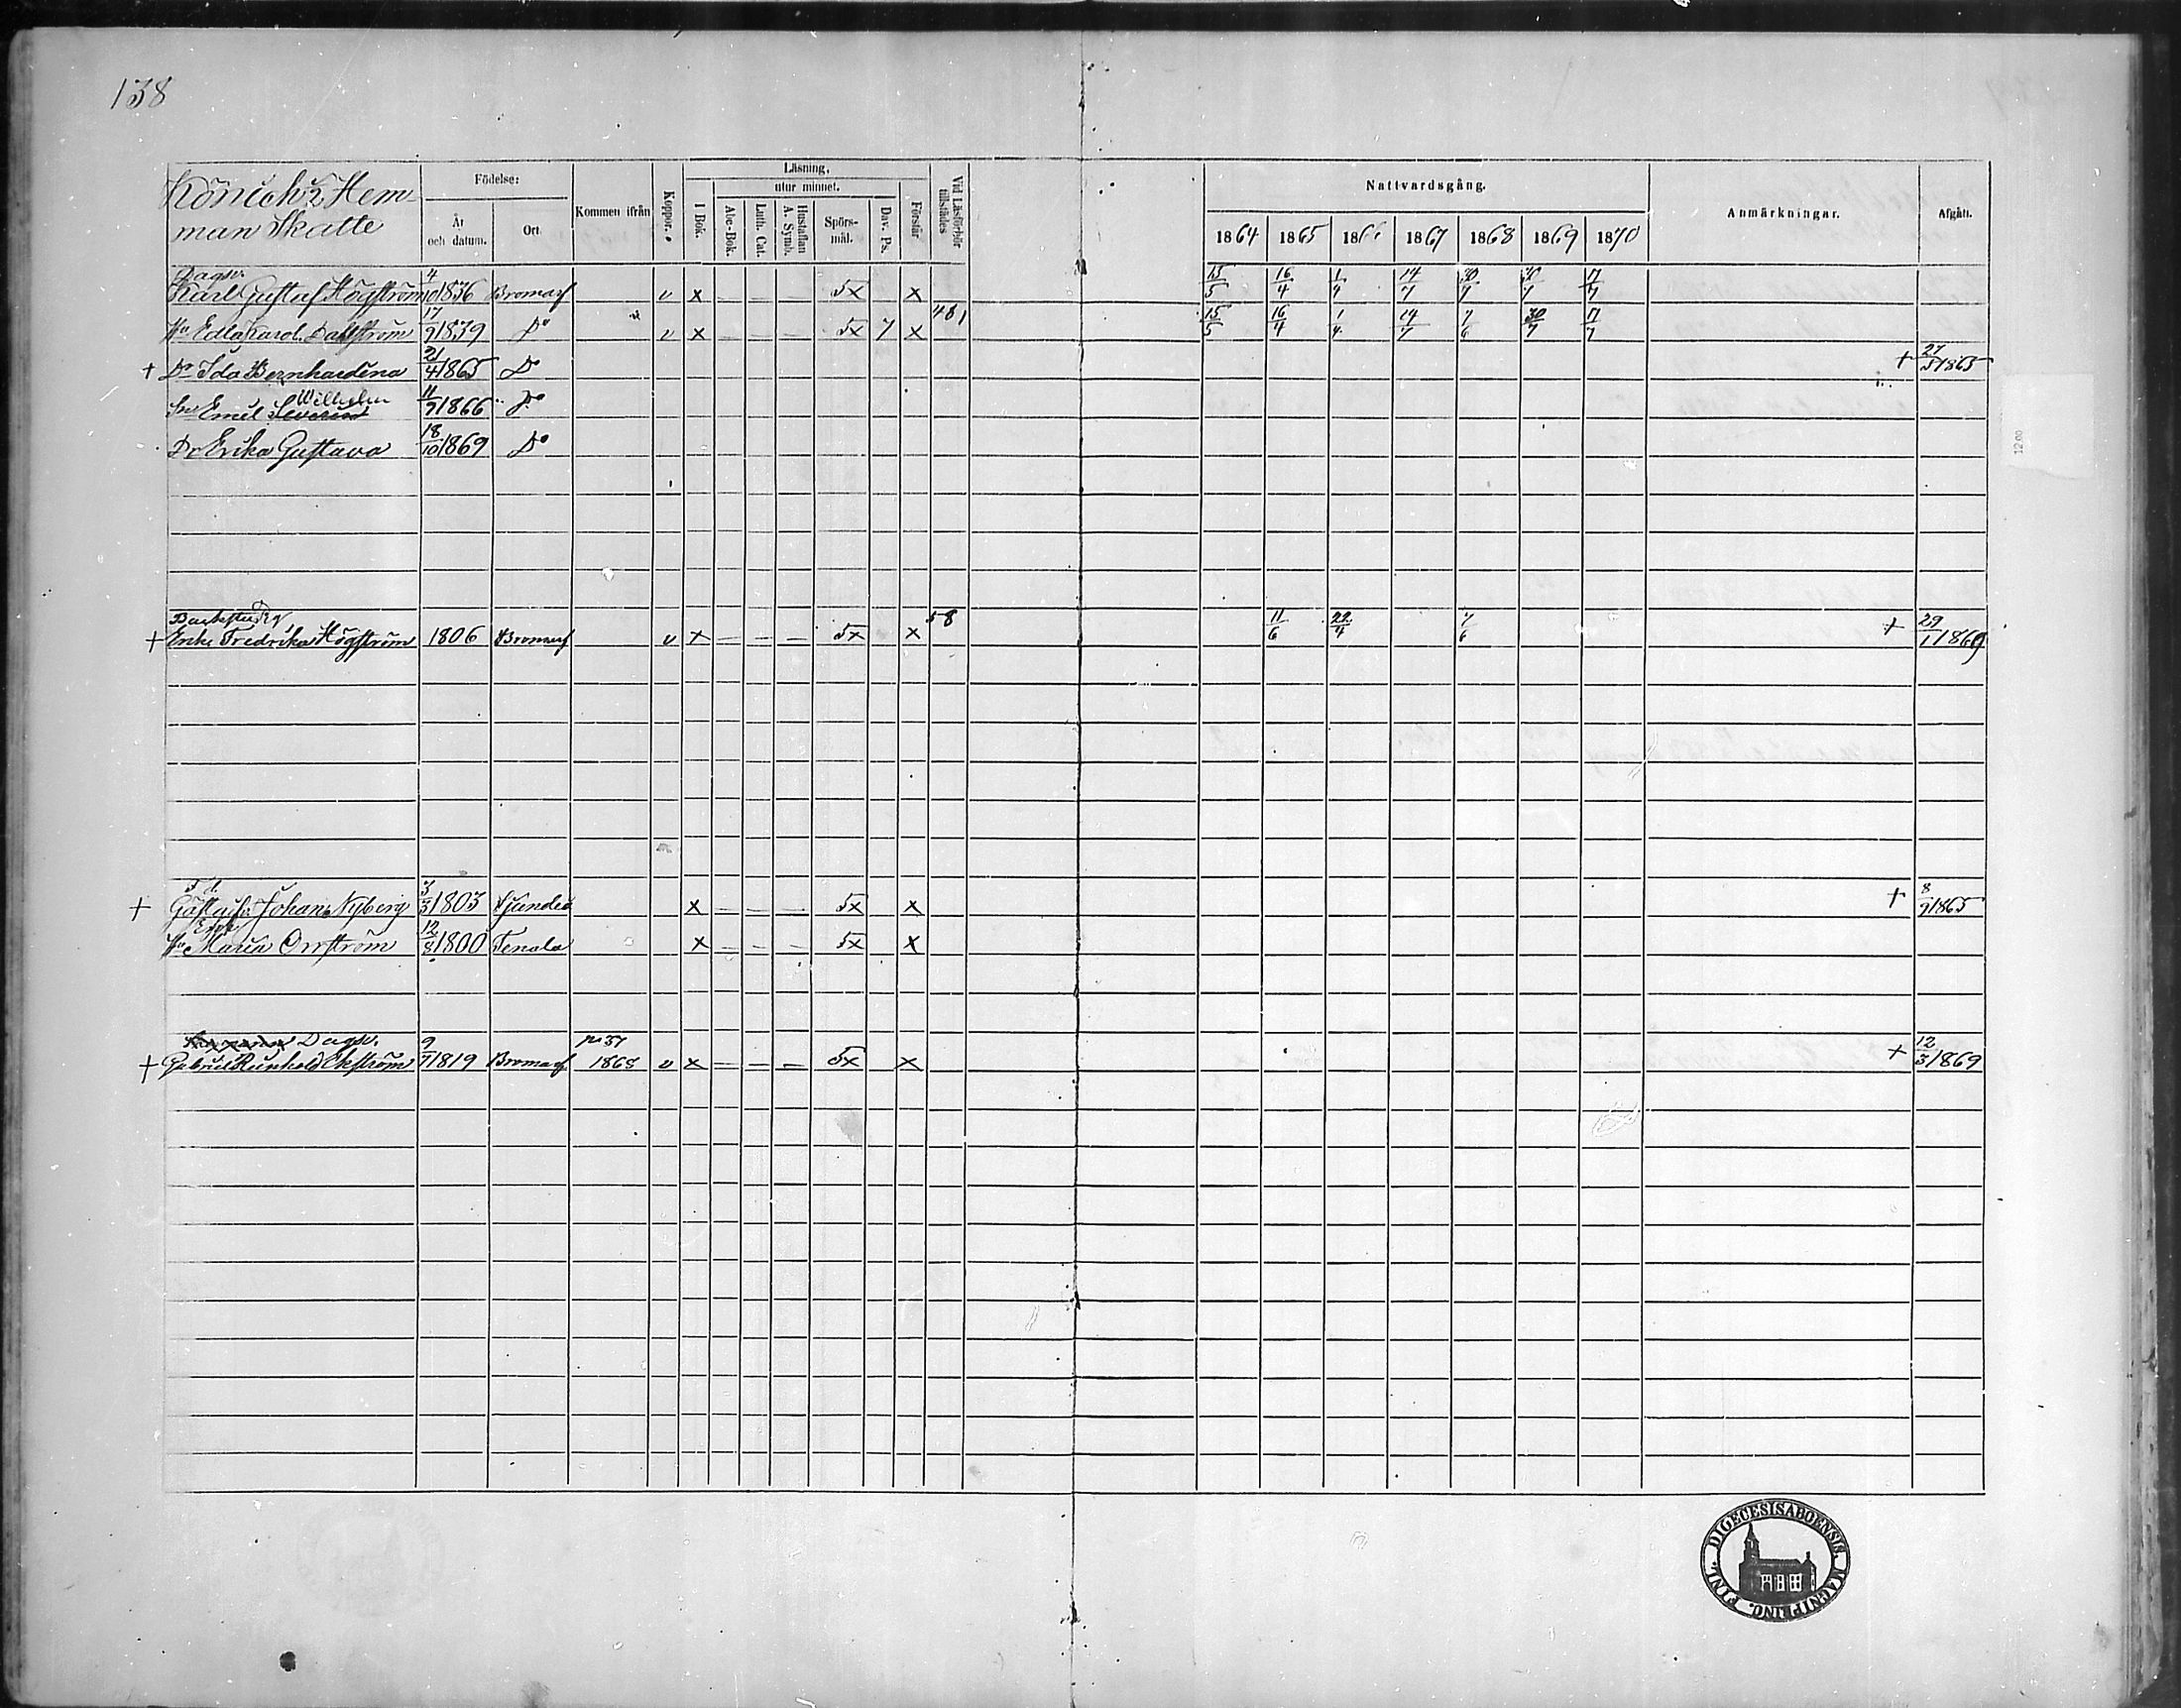 138
Hem-
man Skatte
Födelse:
År
och datum.
Ort.
Kommen ifrån
Koppor.
Läsning.
I Bok.
utur minnet.
Abc-Bok.
Luth. Cat.
Hustaflan
A. Symb.
Spörs-
mål.
Dav. Ps.
Förstår
Vid Läsförhör
tillstädes
Nattvardsgång.
1864 1865 1866 1867 1868 1869 1870
Anmärkningar.
Afgått.
Dagsv.
Karl Gustaf Högström 4/10 1836 Bromarf v x — — — 5x x 15/5 16/4 1/4 14/7 30/7 17/7
481
Hu Edla Karol. Dahlström 17/9 1839 Do v x — — — 5x 7 x 15/5 16/4 1/4 14/7 7/6 30/7 17/7
+ Dr Ida Bernhardina 21/4 1865 Do + 27/5 1865
Wilhelm
Son Emil Severin 11/9 1866 Do
Dr Erika Gustava 18/10 1869 Do
58
+ Enk. Fredrika Högström 1806 Bromarf v x — — — 5x x 11/6 22/4 7/6 + 29/1 1869
F. d.
+ Johan Nyberg 3/3 1803 Sjundeå x — — — 5x x + 8/9 1865
Enk.
Hu Maria Orrström 12/8 1800 Tenala x — — — 5x x
Dagsv.
+ Gabriel Reinhold Ekström 9/11 1819 Bromarf 1868 v x — — — 5x x + 12/3 1869
12.00
DIOECESIS ABOENSIS. MAGNI PRINC. FINL.